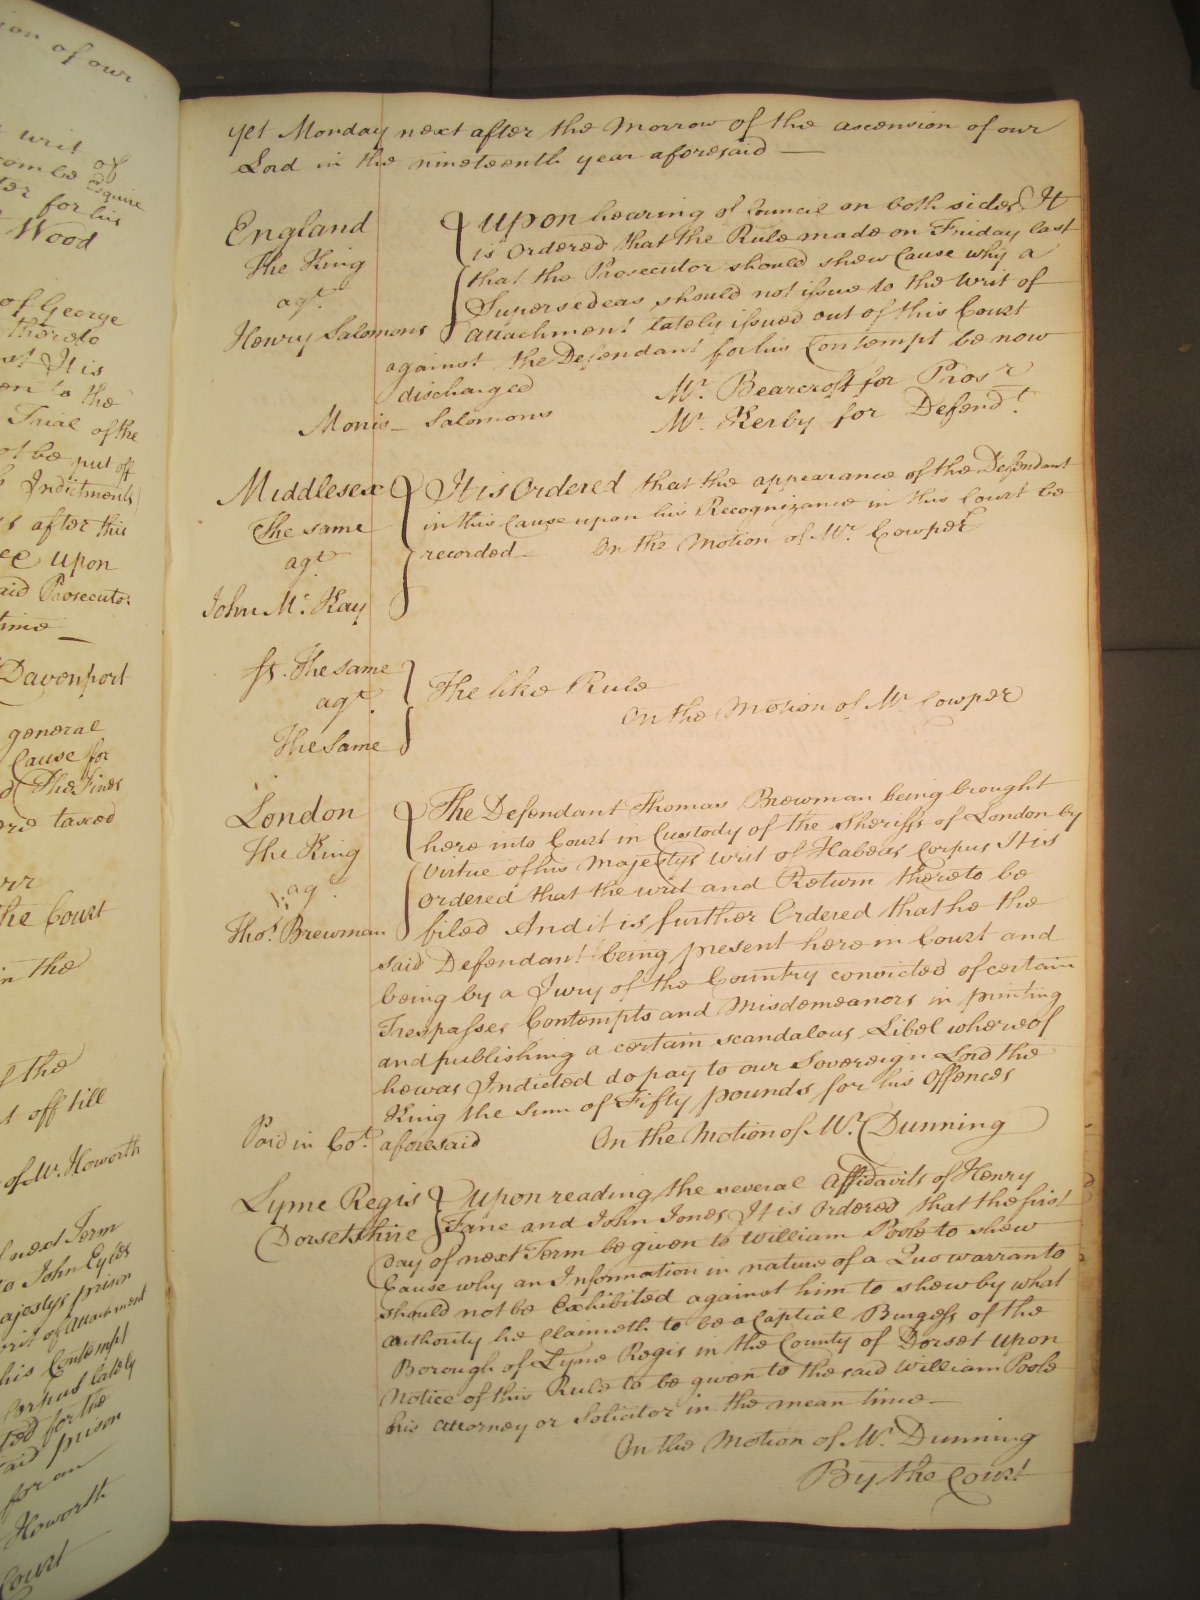 ion of our
writ of
combe Esquire
ter for his
Wood
of George
thereto
It is
en to the
Trial of the
ot be put off
Indictments
s after this
ce upon
aid Prosecutor
time
Davenport
general
Cause for
The Fines
ere taxed
The Court
in the
of the
t off till
of Mr. Howorth
next Term
to John Eyles
ajestys prison
writ of attachment
his Contempt
Corpus lately
ted for the
aid prison
for an
Howorth
Court
yet Monday next after the Morrow of the ascension of our
Lord in the nineteenth year aforesaid —
England
The King
agt.
Henry Salomons
Upon hearing of Council on both sides It
is Ordered that the Rule made on Friday last
that the Prosecutor should shew Cause why a
Supersedeas should not issue to the Writ of
Attachment lately issued out of this Court
against the Defendant for his Contempt be now
discharged
Mr. Bearcroft for Prosr
Morris – Salomons
Mr. Kerby for Defendt.
Middlesex
The same
agt
John Mc. Kay
It is Ordered that the appearance of the Defendant
in this Cause upon his Recognizance in this Court be
recorded – On the Motion of Mr. Cowper
fs. The same
agt.
The same
The like Rule
On the Motion of Mr Cowper
London
The King
agt
Thos. Brewman
The Defendant Thomas Brewman being brought
here into Court in Custody of the Sheriffs of London by
Virtue of his Majestys writ of Habeas Corpus It is
ordered that the writ and Return thereto be
filed And it is further Ordered that he the
said Defendant being present here in Court and
being by a Jury of the Country convicted of certain
Trespasses Contempts and Misdemeanors in printing
and publishing a certain scandalous Libel whereof
he was Indicted do pay to our Sovereign Lord the
King the Sum of Fifty pounds for his Offences
aforesaid On the Motion of Mr. Dunning
Paid in Cot.
Lyme Regis
Dorsetshire
Upon reading the several Affidavits of Henry
Fane and John Jones It is Ordered that the first
day of next Term be given to William Poole to shew
Cause why an Information in nature of a Quo warranto
should not be Exhibited against him to shew by what
authority he claimeth to be a Captial Burgess of the
Borough of Lyme Regis in the County of Dorset upon
Notice of this Rule to be given to the said William Poole
his attorney or Solicitor in the mean time –
On the Motion of Mr. Dunning
By the Court